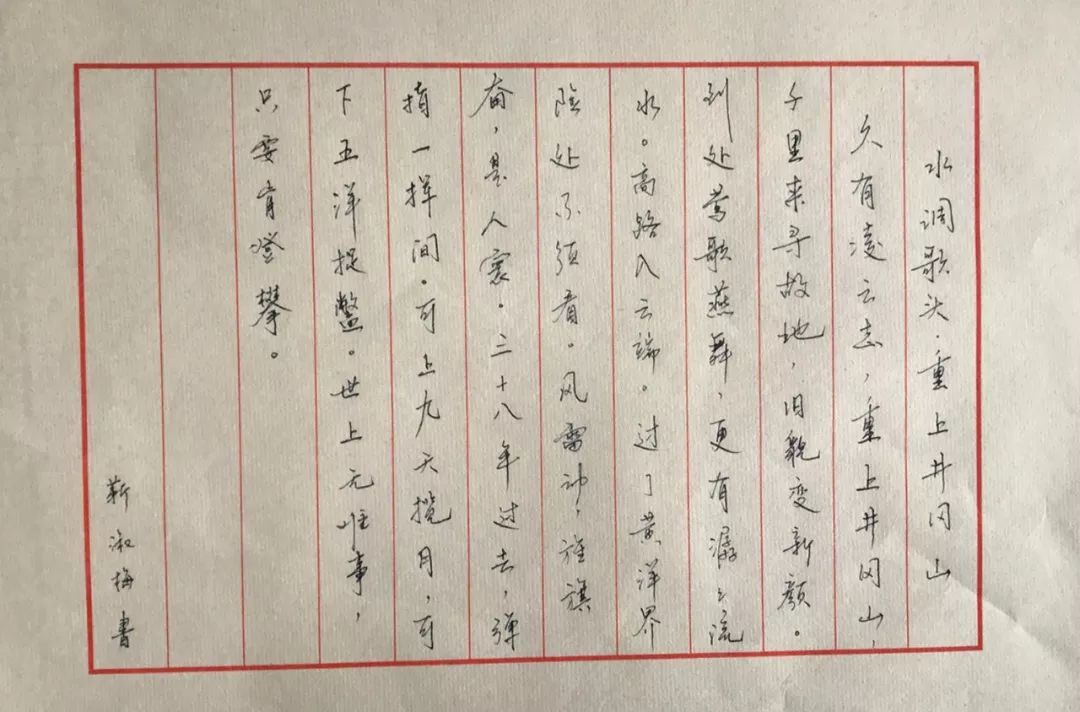 水调歌头·重上井冈山
久有凌云志，重上井冈山，
千里来寻故地，旧貌变新颜。
到处莺歌燕舞，更有潺々流
水。高路入云端。过了黄洋界
险处不须看。风雷动，旌旗
奋，是人寰。三十八年过去，弹
指一挥间。可上九天揽月，可
下五洋捉鳖。世上无难事，
只要肯登攀。
靳淑梅书